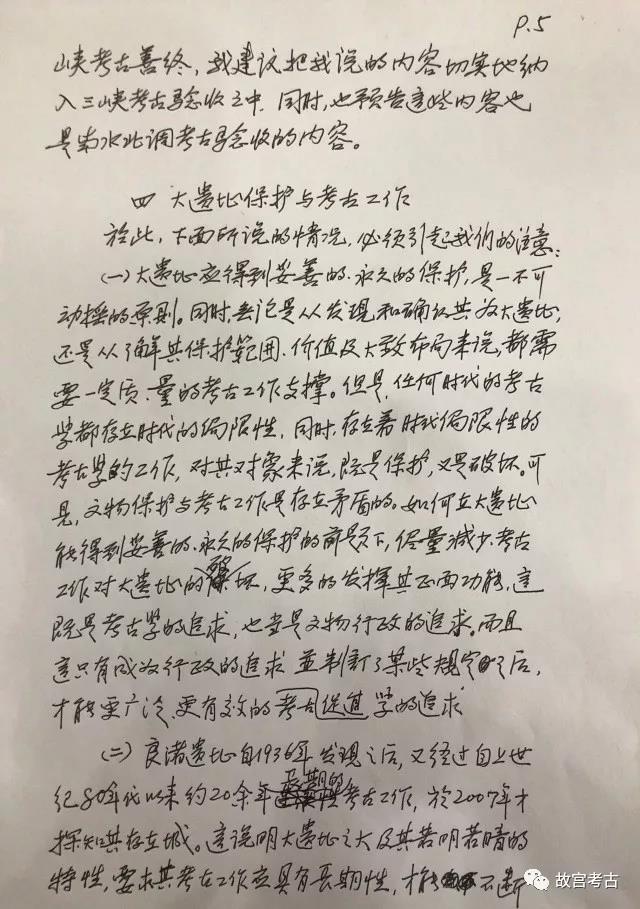 P.5
峡考古善终，我建议把我说的内容切实地纳
入三峡考古验收之中，同时，也预告这些内容也
是南水北调考古验收的内容。
四 大遗址保护与考古工作
於此，下面所说的情况，必须引起我们的注意：
(一)大遗址应得到妥善的、永久的保护，是一不可
动摇的原则。同时，无论是从发现和确认其为大遗址，
还是从了解其保护範围、价值及大致布局来说，都需
要一定质、量的考古工作支撑。但是，任何时代的考古
学都存在时代的侷限性，同时，存在着时代侷限性的
考古学的工作，对其对象来说，既是保护，又是破坏。可
见，文物保护与考古工作是存在矛盾的。如何在大遗址
能得到妥善的、永久的保护的前题下，儘量减少考古
工作对大遗址的破坏，更多的发挥其正面功能，这
既是考古学的追求，也当是文物行政的追求。而且
这只有成为行政的追求 並制訂了某些规定之后，
才能更广泛、更有效的 促進 考古学的追求
(二) 良渚遗址自1936年发现之后，又经过自上世
纪80年代以来约20余年长期的考古工作，於2007年才
探知其存在城。这说明大遗址之大及其若明若暗的
特性，要求其考古工作应具有长期性，才能不断
故宫考古